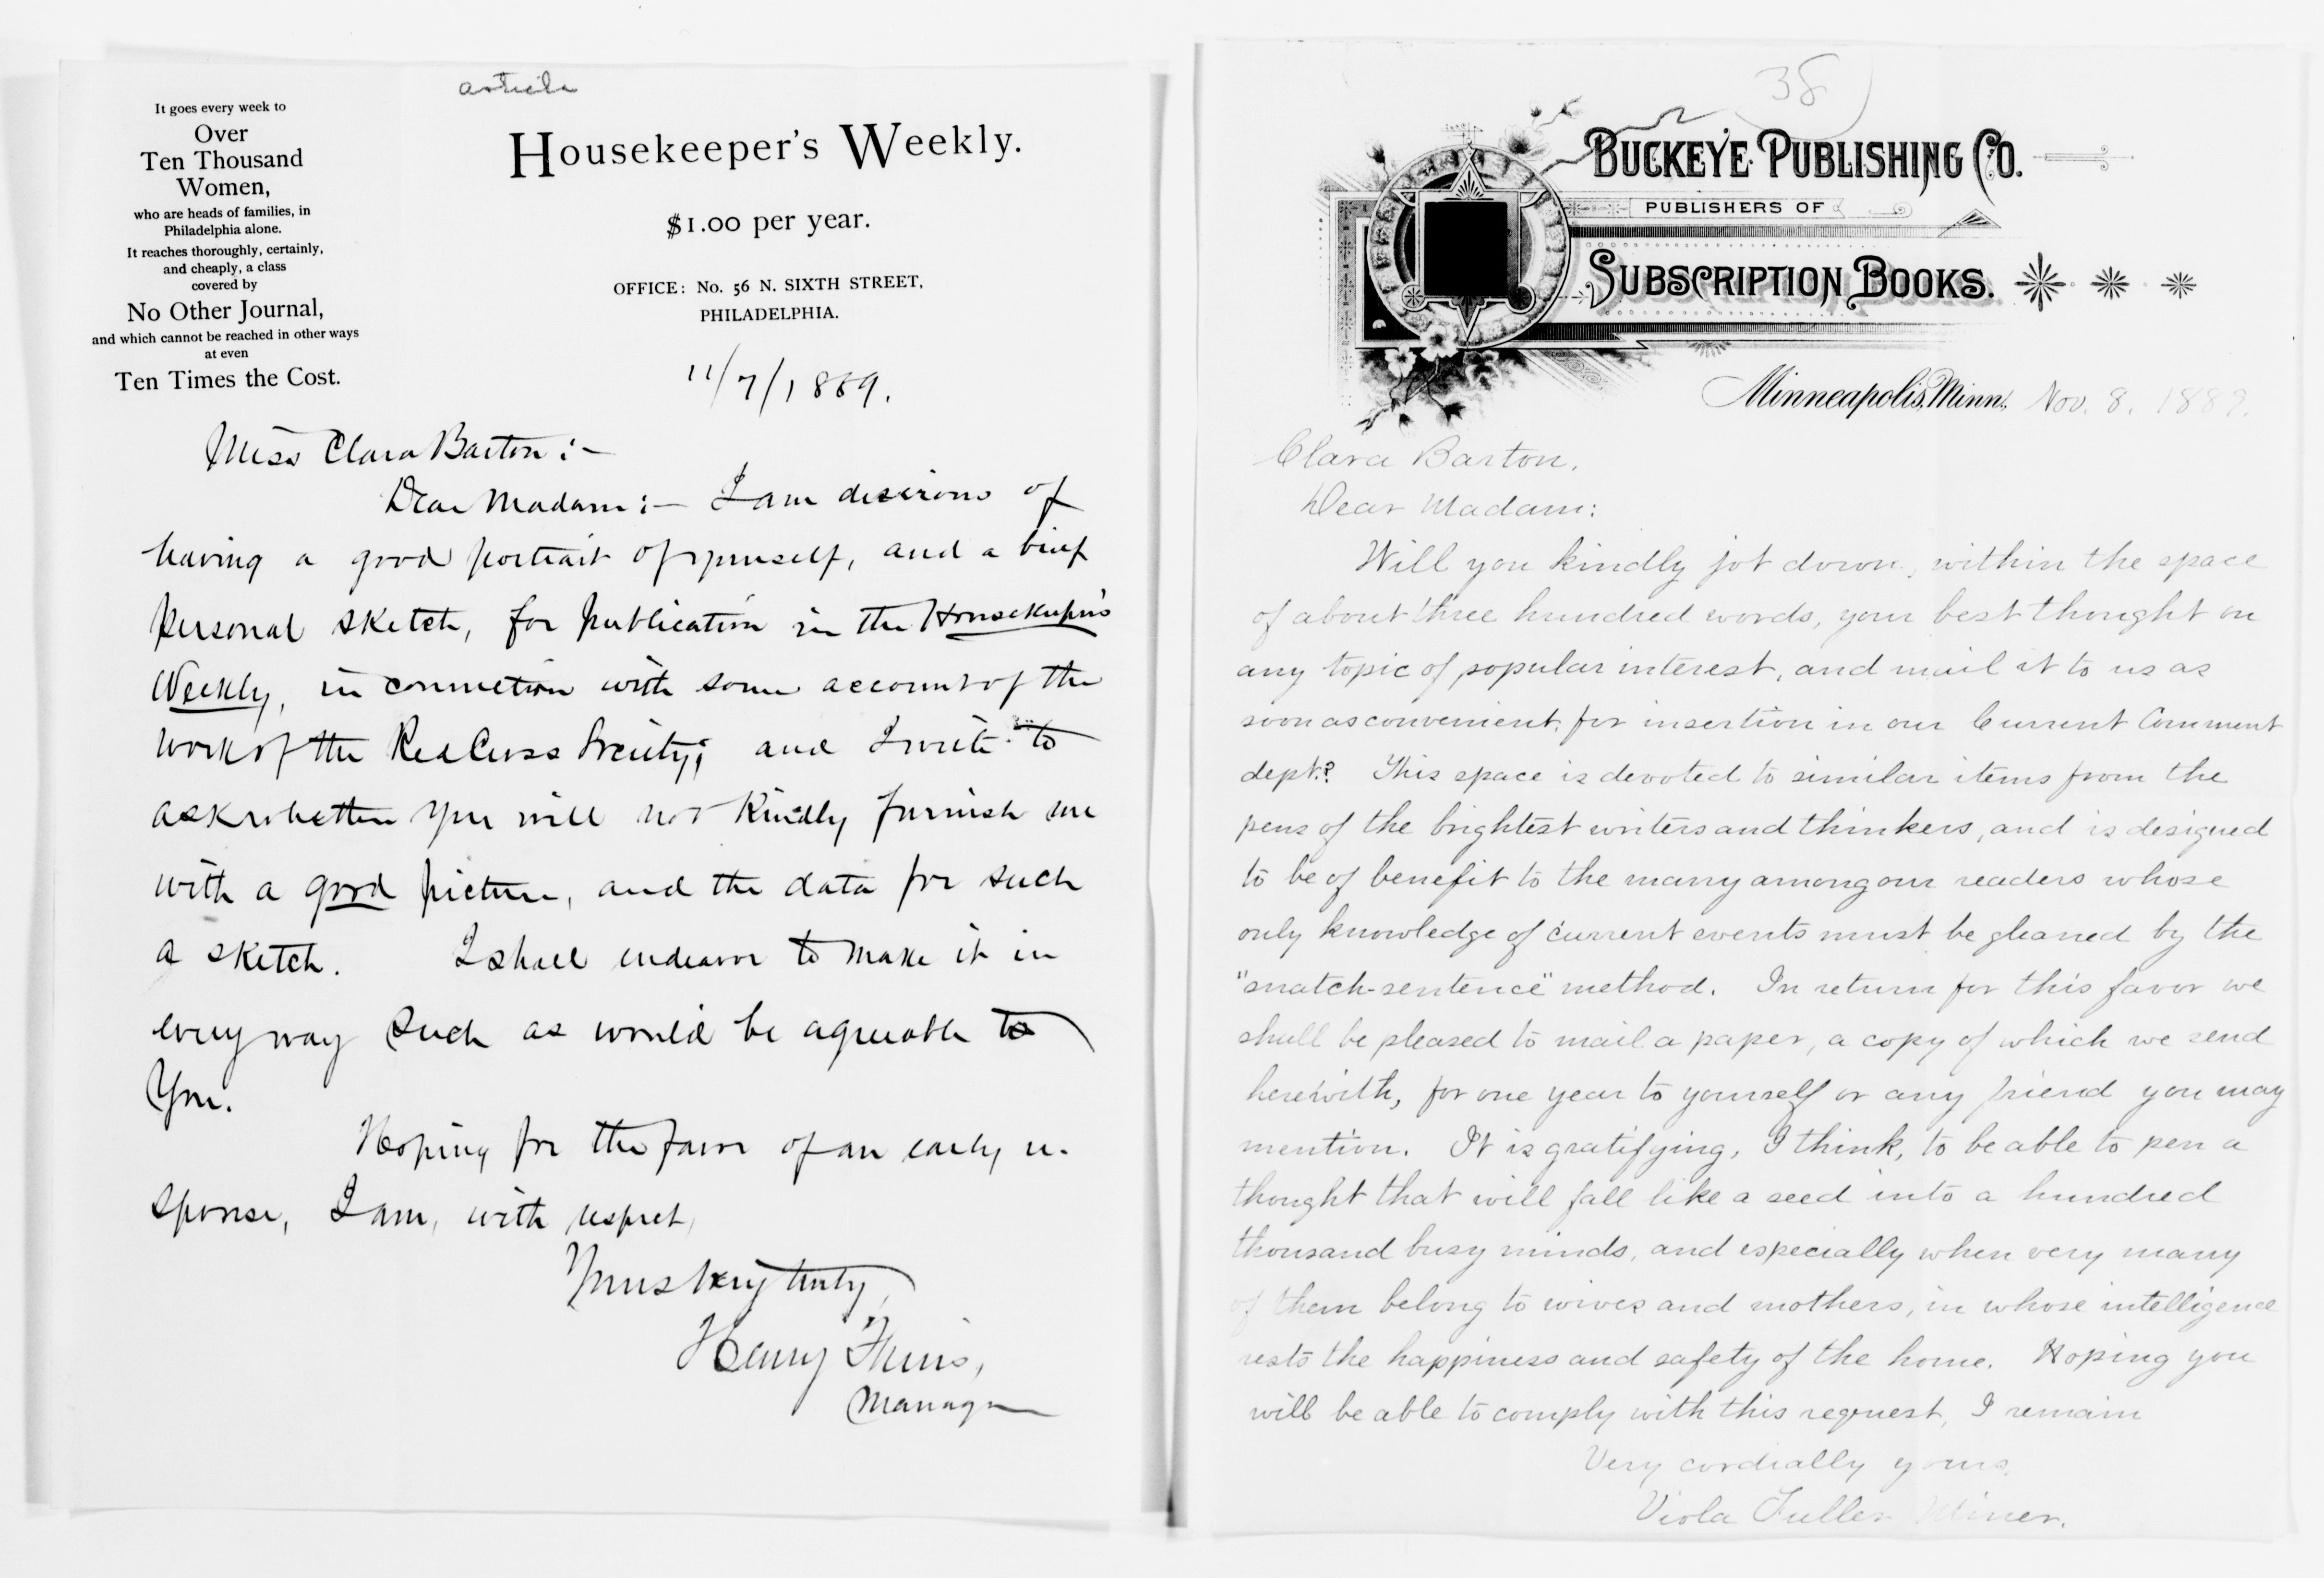 article
It goes every week to
Over
Ten Thousand
Women,
who are heads of families, in
Philadelphia alone.
It reaches thoroughly, certainly,
and cheaply, a class
covered by
No Other Journal,
and which cannot be reached in other ways
at even
Ten Times the Cost.
Housekeeper's Weekly.
$1.00 per year.
OFFICE: No. 56 N. SIXTH STREET,
PHILADELPHIA.
11/7/1889.
Miss Clara Barton:-
Dear Madam:- I am desirous of
having a good portrait of yourself, and a brief
personal sketch, for publication in the Housekeeper's
Weekly, in connection with some account of the
work of the Red Cross Society; and I write to
ask whether you will not kindly furnish me
with a good picture, and the data for such
a sketch. I shall endeavor to make it in
every way such as would be agreeable to
you.
Hoping for the favor of an early re-
sponse, I am, with respect,
Yours very truly,
Henry
Manager
38
BUCKEYE PUBLISHING CO.
PUBLISHERS OF
SUBSCRIPTION BOOKS.
Minneapolis, Minn., Nov. 8, 1889.
Clara Barton,
Dear Madam:
Will you kindly jot down, within the space
of about three hundred words, your best thought on
any topic of popular interest, and mail it to us as
soon as convenient, for insertion in our Current Comment
dept.? This space is devoted to similar items from the
pens of the brightest writers and thinkers, and is designed
to be of benefit to the many among our readers whose
only knowledge of current events must be gleaned by the
"snatch-sentence" method. In return for this favor we
shall be pleased to mail a paper, a copy of which we send
herewith, for one year to yourself or any friend you may
mention. It is gratifying, I think, to be able to pen a
thought that will fall like a seed into a hundred
thousand busy minds, and especially when very many
of them belong to wives and mothers, in whose intelligence
rests the happiness and safety of the home. Hoping you
will be able to comply with this request, I remain
Very cordially yours,
Viola Fuller Miner.